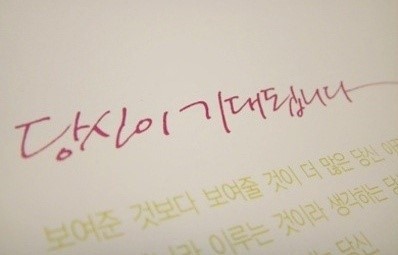 당신이 기대됩니다
보여준 것보다 보여줄 것이 더 많은 당신
이루는 것이라 생각하는
당신